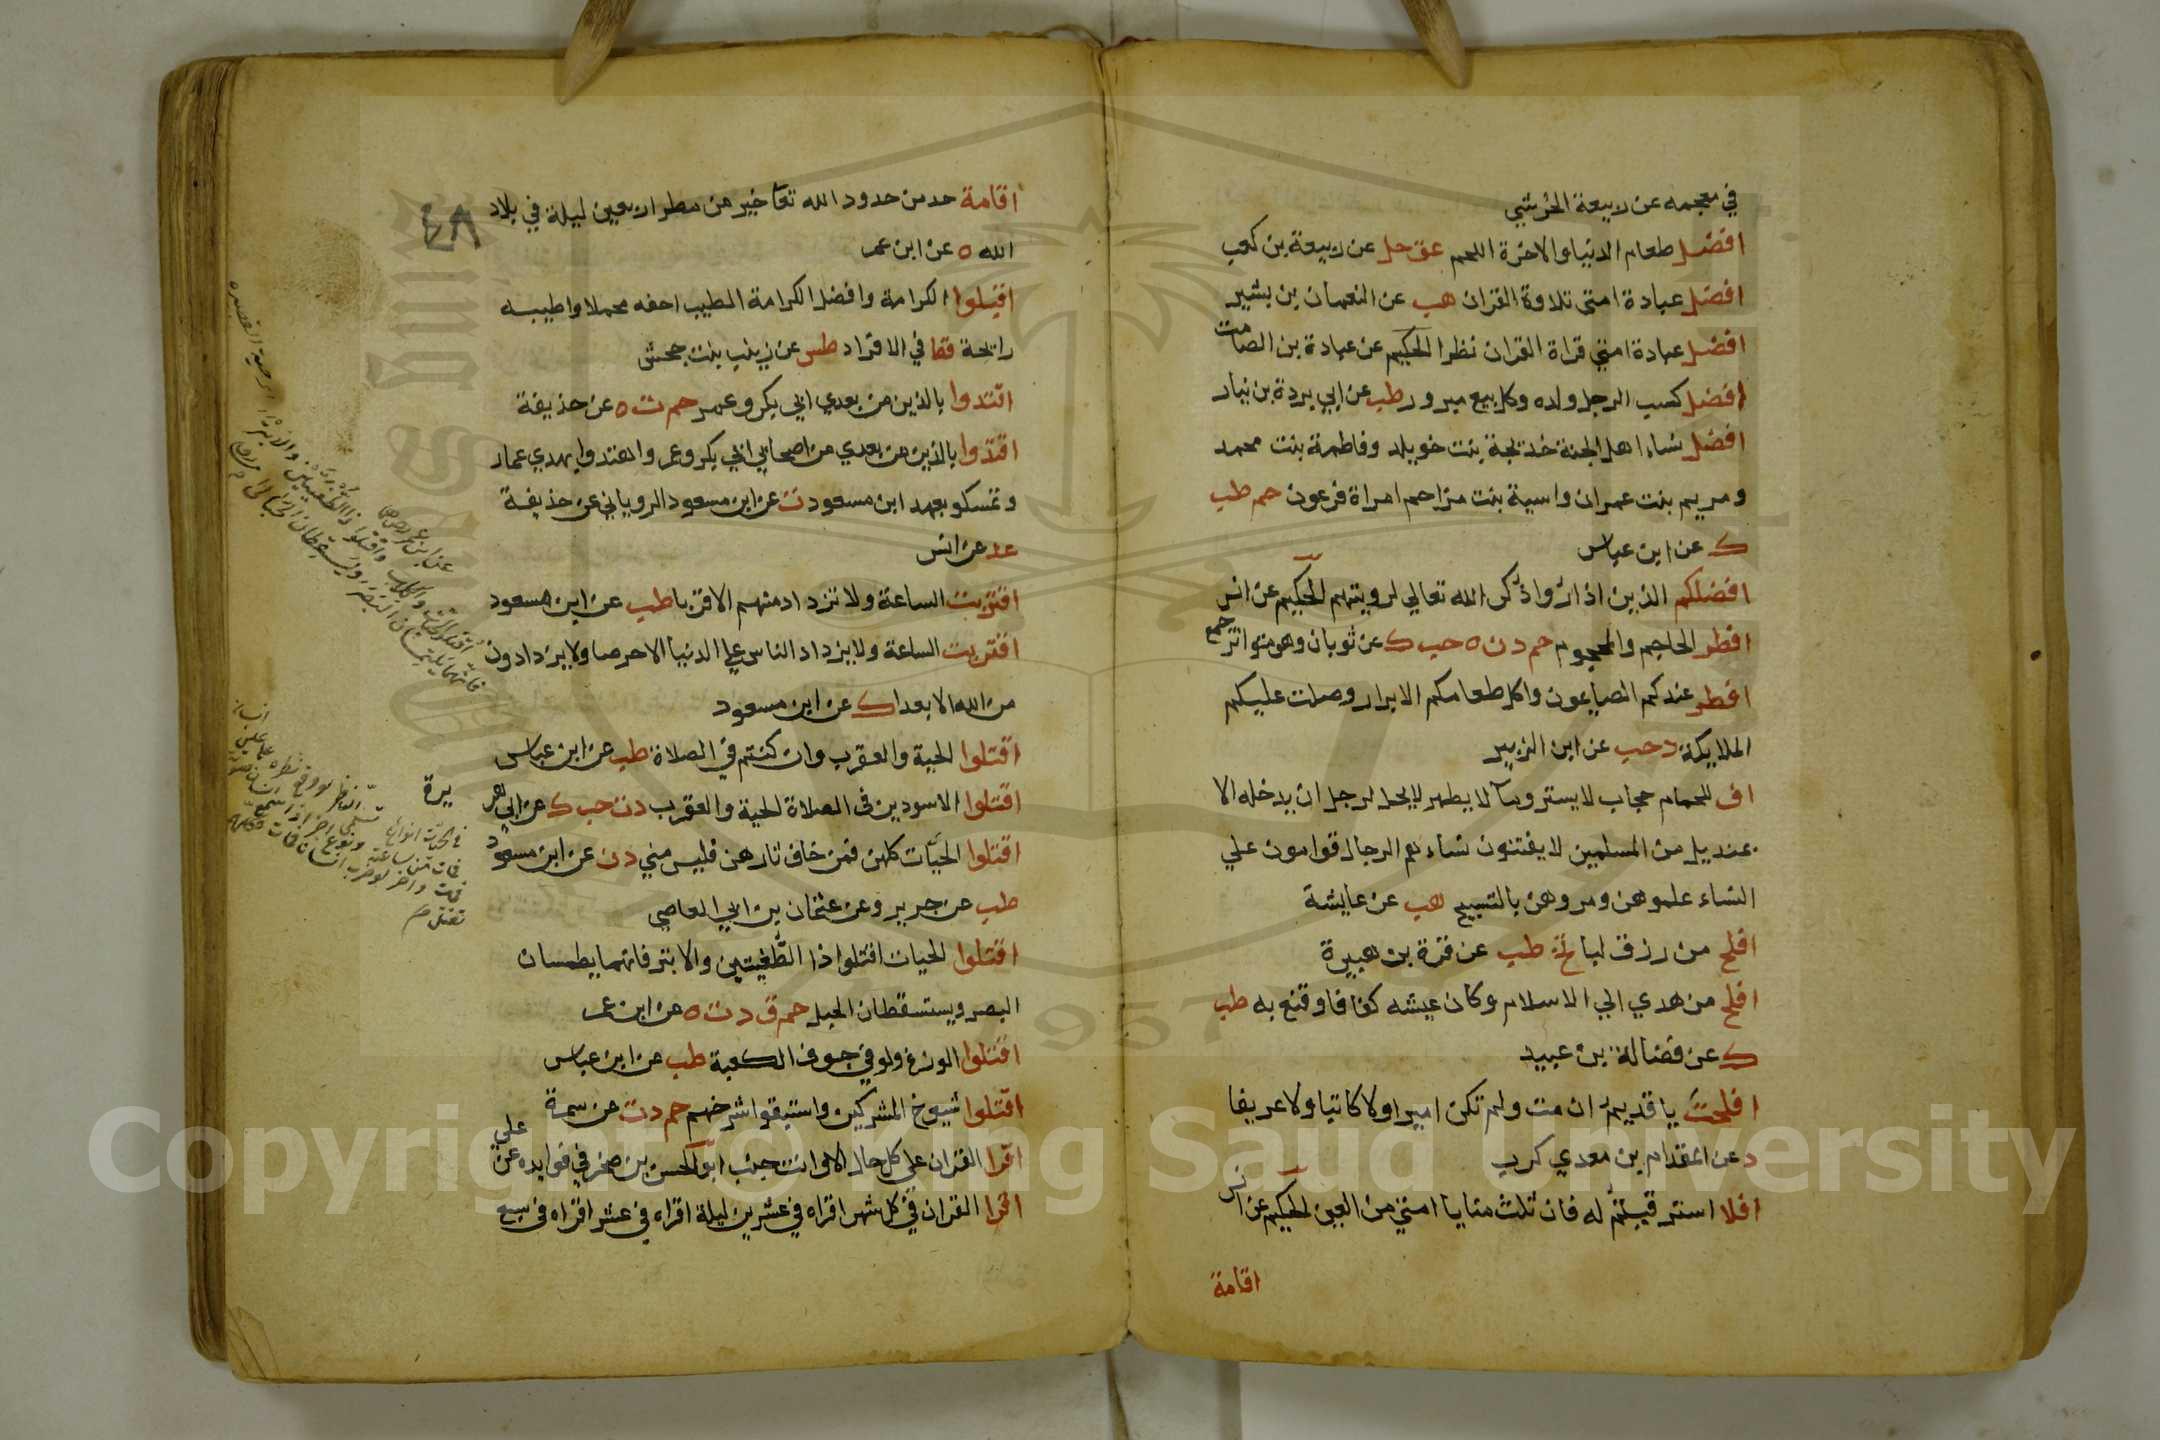 في معجمه عن ربيعة الجرشي
افضل طعام الدنيا والاخرة اللحم عق حل عن ربيعة بن كعب
افضل عبادة امتى تلاوة القران هب عن النعمان بن بشير
افضل عبادة امتي قراة القران نظرا الحكيم عن عبادة بن الصامت
افضل كسب الرجل ولده وكل بيع مبرور طب عن ابي بردة بن نيار
افضل نساء اهل الجنة خديجة بنت خويلد وفاطمة بنت محمد
ومريم بنت عمران واسية بنت مزاحم امراة فرعون حم طب
ك عن ابن عباس
افضلكم الذين اذا رؤا ذكر الله تعالي لرويتهم الحكيم عن انس
افطر الحاجم والمحجوم حم د ن ه حب ك عن ثوبان وهو متواتر
افطر عندكم الصايمون واكل طعامكم الابرار وصلت عليكم
الملايكة د حب عن ابن الزبير
اف للحمام حجاب لا يستر وماء لا يطهر لا يحل لرجل ان يدخله الا
بمنديل مر المسلمين لا يفتنون نساءهم الرجال قوامون علي
النساء علموهن ومروهن بالتسبيح هب عن عايشة
افلح من رزق لبا تخ طب عن قرة بن هبيرة
افلح من هدي الي الاسلام وكان عيشه كفافا وقنع به طب
ك عن فضالة بن عبيد
افلحت يا قديم ان مت ولم تكن اميرا ولا كاتبا ولا عريفا
د عن المقدام بن معدي كرب
افلا استرقيتم له فان ثلث منايا امتي من العين الحكيم عن انس
اقامة
٤٨
اقامة حد من حدود الله تعا خير من مطر اربعين ليلة في بلاد
الله ه عن ابن عمر
اقبلوا الكرامة وافضل الكرامة الطيب اخفه محملا واطيبه
رايحة قط في الافراد طس عن زينب بنت جحش
اقتدوا بالذين من بعدي ابي بكر وعمر حم ت ه عن حذيفة
اقتدوا بالذين من بعدي من اصحابي ابي بكر وعمر واهتدوا بهدي عمار
وتمسكو بعهد ابن مسعود ت عن ابن مسعود الروياني عن حذيفة
عد عن انس
اقتربت الساعة ولا تزداد منهم الا قربا طب عن ابن مسعود
اقتربت الساعة ولا يزداد الناس علي الدنيا الا حرصا ولا يزدادون
من الله الا بعدا ك عن ابن مسعود
اقتلوا الحية والعقرب وان كنتم في الصلاة طب عن ابن عباس
اقتلوا الاسودين في الصلاة الحية والعقرب د ت حب ك عن ابي هر
يرة
اقتلوا الحيات كلهن فمن خاف ثارهن فليس مني د ن عن ابن مسعود
طب عن جرير وعن عثمان بن ابي العاصي
اقتلوا الحيات اقتلوا ذا الطفيتين والابتر فانهما يطمسان
البصر ويستسقطان الحبل حم ق د ت ه عن ابن عمر
اقتلوا الوزغ ولو في جوف الكعبة طب عن ابن عباس
اقتلوا شيوخ المشركين واستبقوا شرخهم حم د ت عن سمرة
اقرا القران علي كل حال الا وانت جنب ابو الحسن بن صخر في فوايده عن علي
اقرا القران في كل شهر اقراه في عشرين ليلة اقراه في عشر اقراه في سبع
اقتلوا الحيات والكلاب واقتلوا ذا الطفيتين والابتر
Copyright © King Saud University
1957